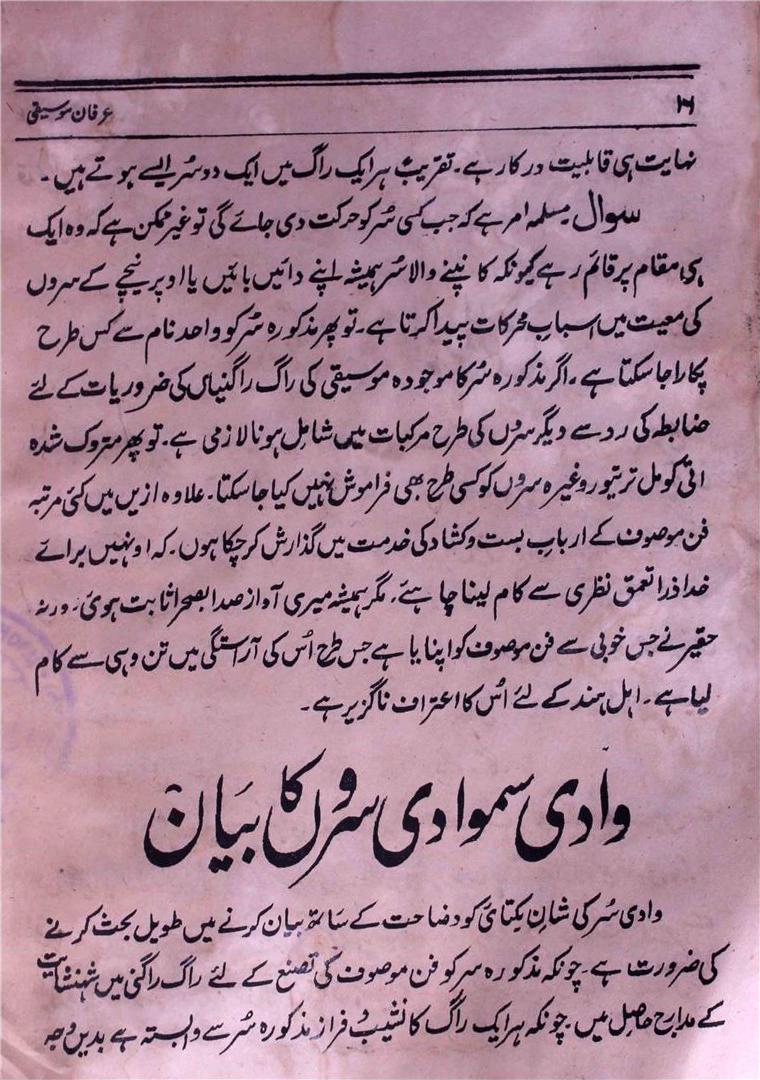 ۳۱
عرفان موسیقی
نہایت ہی قابلیت درکار ہے۔ تقریبً ہر ایک راگ میں ایک دو سُر ایسے ہوتے ہیں۔
سوال۔ مسلمہ امر ہے کہ جب کسی سُر کو حرکت دی جائے گی تو غیر ممکن ہے کہ وہ ایک
ہی مقام پر قائم رہے کیونکہ کانپنے والا سُر ہمیشہ اپنے دائیں بائیں یا اوپر نیچے کے سروں
کی معیت میں اسبابِ محرکات پیدا کرتا ہے۔ تو پھر مذکورہ سُر کو واحد نام سے کس طرح
پکارا جا سکتا ہے۔ اگر مذکورہ سُر کا موجودہ موسیقی کی راگ راگنیاں کی ضروریات کے لئے
ضابطہ کی رد سے دیگر سروں کی طرح مرکبات میں شامل ہونا لازمی ہے۔ تو پھر متروک شدہ
اتی کومل تر تیور وغیرہ سروں کو کسی طرح بھی فراموش نہیں کیا جا سکتا۔ علاوہ ازیں میں کئی مرتبہ
فن موصوف کے ارباب بست و کشاد کی خدمت میں گذارش کر چکا ہوں۔ کہ اونہیں برائے
خدا ذرا تعمق نظری سے کام لینا چاہئے۔ مگر ہمیشہ میری آواز صدا بصحرا ثابت ہوئی۔ ورنہ
حقیر نے جس خوبی سے فن موصوف کو اپنایا ہے جس طرح اُس کی آراستگی میں تن دہی سے کام
لیا ہے۔ اہل ہند کے لئے اُس کا اعتراف ناگزیر ہے۔
وادی سموادی سروں کا بیان
وادی سُر کی شان یکتائی کو وضاحت کے ساتھ بیان کرنے میں طویل بحث کرنے
کی ضرورت ہے۔ چونکہ مذکورہ سر کو فن موصوف کی تصنع کے لئے راگ راگنی میں شہنشاہیت
کے مدارج حاصل ہیں۔ چونکہ ہر ایک راگ کا نشیب و فراز مذکورہ سُر سے وابستہ ہے بدیں وجہ